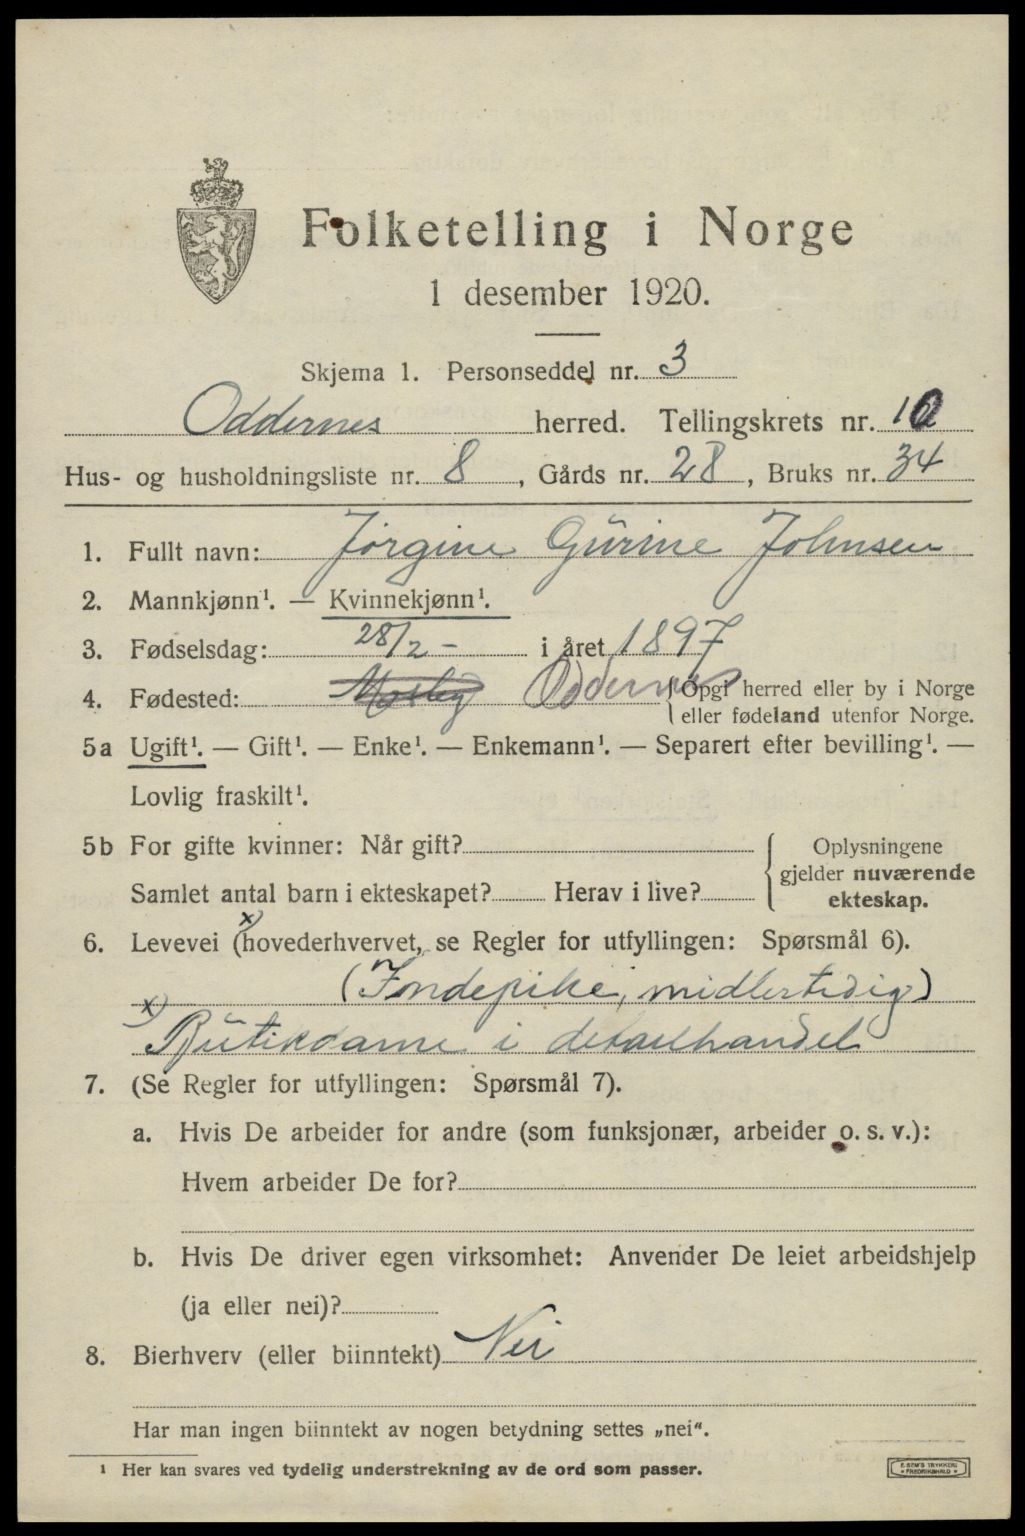 Folketelling i Norge
1 desember 1920.
Skjema 1. Personseddel nr. 3
Oddernes herred. Tellingskrets nr. 10
Hus- og husholdningsliste nr. 8, Gårds nr. 28, Bruks nr. 34
1. Fullt navn: Jørgine Gürine Johnsen
2. Mannkjønn¹. — Kvinnekjønn¹.
3. Fødselsdag: 28/2 - i året 1897
4. Fødested: Mosby Oddernes { Opgi herred eller by i Norge
eller fødeland utenfor Norge.
5a Ugift¹. — Gift¹. — Enke¹. — Enkemann¹. — Separert efter bevilling¹. —
Lovlig fraskilt¹.
5b For gifte kvinner: Når gift? { Oplysningene
gjelder nuværende
Samlet antal barn i ekteskapet? Herav i live? ekteskap.
x)
6. Levevei (hovederhvervet, se Regler for utfyllingen: Spørsmål 6).
(Indepike, midlertidig)
x) Butikdame i detailhandel
7. (Se Regler for utfyllingen: Spørsmål 7).
a. Hvis De arbeider for andre (som funksjonær, arbeider o. s. v.):
Hvem arbeider De for?
b. Hvis De driver egen virksomhet: Anvender De leiet arbeidshjelp
(ja eller nei)?
8. Bierhverv (eller biinntekt) Nei
Har man ingen biinntekt av nogen betydning settes „nei“.
¹ Her kan svares ved tydelig understrekning av de ord som passer.
E. SEM'S TRYKKERI
• FREDRIKSHALD •